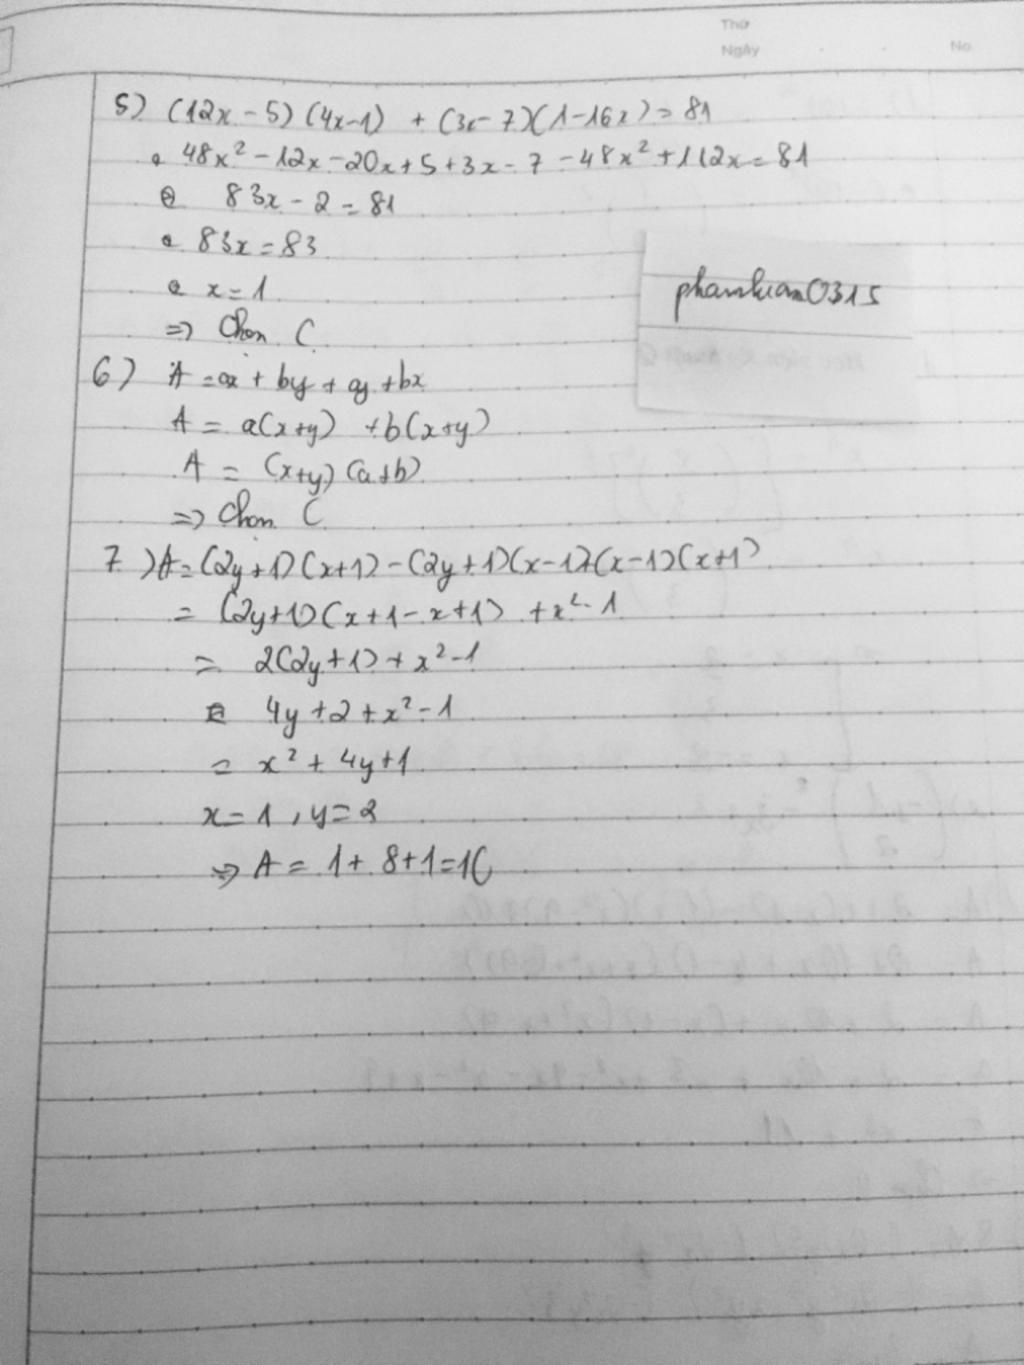 Thứ
Ngày
No
5) (12x - 5) (4x-1) + (3x - 7)(1-16x) = 81
48x² - 12x - 20x + 5 + 3x - 7 - 48x² + 112x = 81
83x - 2 = 81
83x = 83
x = 1
=> Chọn C
phamhuan0315
6) A = ax + by + ay + bx
A = a(x+y) + b(x+y)
A = (x+y) (a+b)
=> Chọn C
7) A = (2y+1)(x+1) - (2y+1)(x-1)+(x-1)(x+1)
= (2y+1)(x+1-x+1) + x² - 1
= 2(2y+1) + x² - 1
= 4y + 2 + x² - 1
= x² + 4y + 1
x = 1, y = 2
=> A = 1 + 8 + 1 = 10